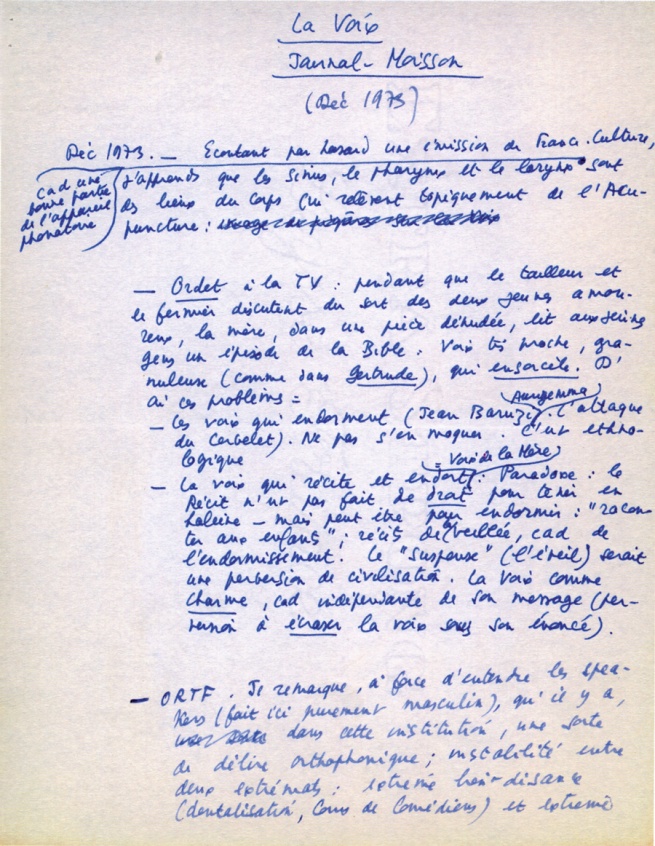 La Voix
Journal-Moisson
(Déc 1973)
Déc 1973. — Ecoutant par hasard une émission de France-Culture,
j'apprends que les sinus, le pharynx et le larynx sont
cad une
bonne partie
de l'appareil
phonatoire
des lieux du corps qui relèvent topiquement de l'Acu-
puncture :
— Ordet à la TV : pendant que le tailleur et
le fermier discutent du sort des deux jeunes amou-
reux, la mère, dans une pièce dénudée, lit aux jeunes
gens un épisode de la Bible : Voix très proche, gra-
nuleuse (comme dans Gertrude), qui ensorcèle. D'
où ces problèmes =
— Les voix qui endorment (Jean Baruzi. l'attaque
du Corbelet). Ne pas s'en moquer. C'est ethno-
logique
= Voix de la Mère
— La voix qui récite et endort : Paradoxe : le
Récit n'est pas fait de droit pour tenir en
haleine — mais peut être pour endormir : "racon-
ter aux enfants" ; récit de veillée, cad de
l'endormissement. Le "suspense" (l'éveil) serait
une perversion de civilisation. La Voix comme
charme, cad indépendante de son message (per-
version à écraser la voix sous son énoncé).
— ORTF. Je remarque, à force d'entendre les spea-
kers (fait ici purement masculin), qu'il y a,
dans cette institution, une sorte
de délire orthophonique ; instabilité entre
deux extrémals : extrême bien-disance
(dentalisation, Cours de Comédiens) et extrême